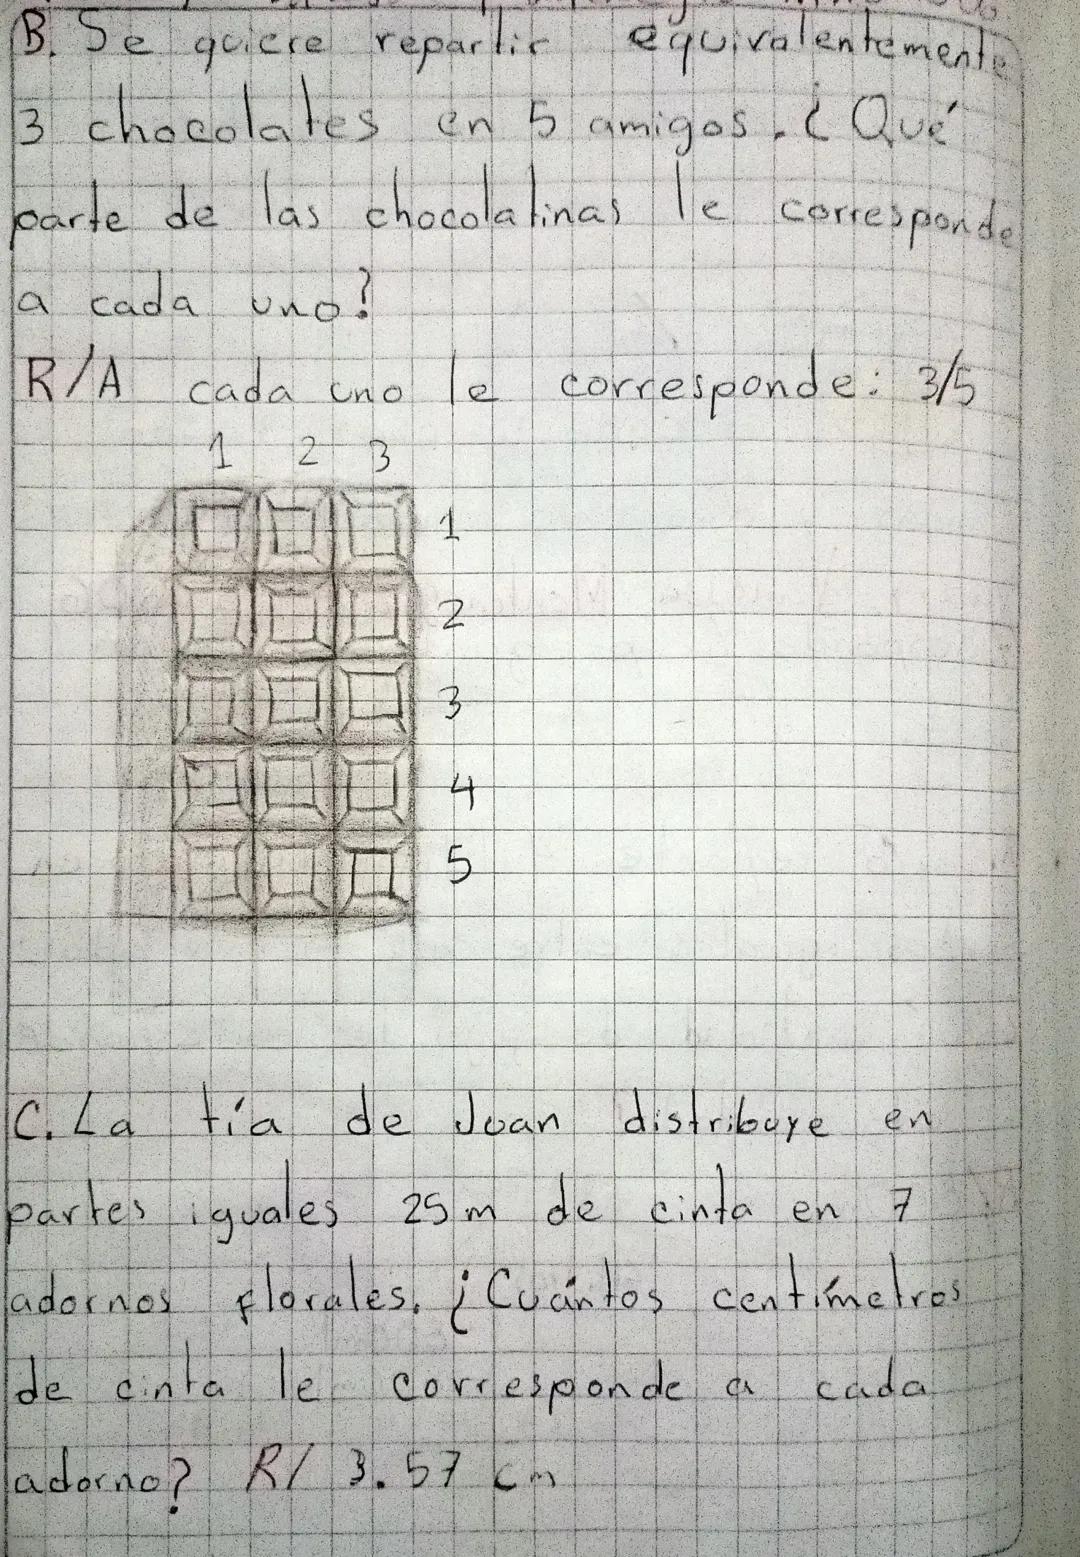 B. Se quiere repartir equivalentemente
3 chocolates en 5 amigos. ¿Qué
parte de las chocolatinas le corresponde
a cada uno?
R/A cada uno le corresponde: 3/5
1 2 3
1
2
3
4
5
C. La tía de Juan distribuye en
partes iguales 25 m de cinta en 7
adornos florales. ¿Cuántos centímetros
de cinta le corresponde a cada
adorno? R/ 3.57 cm